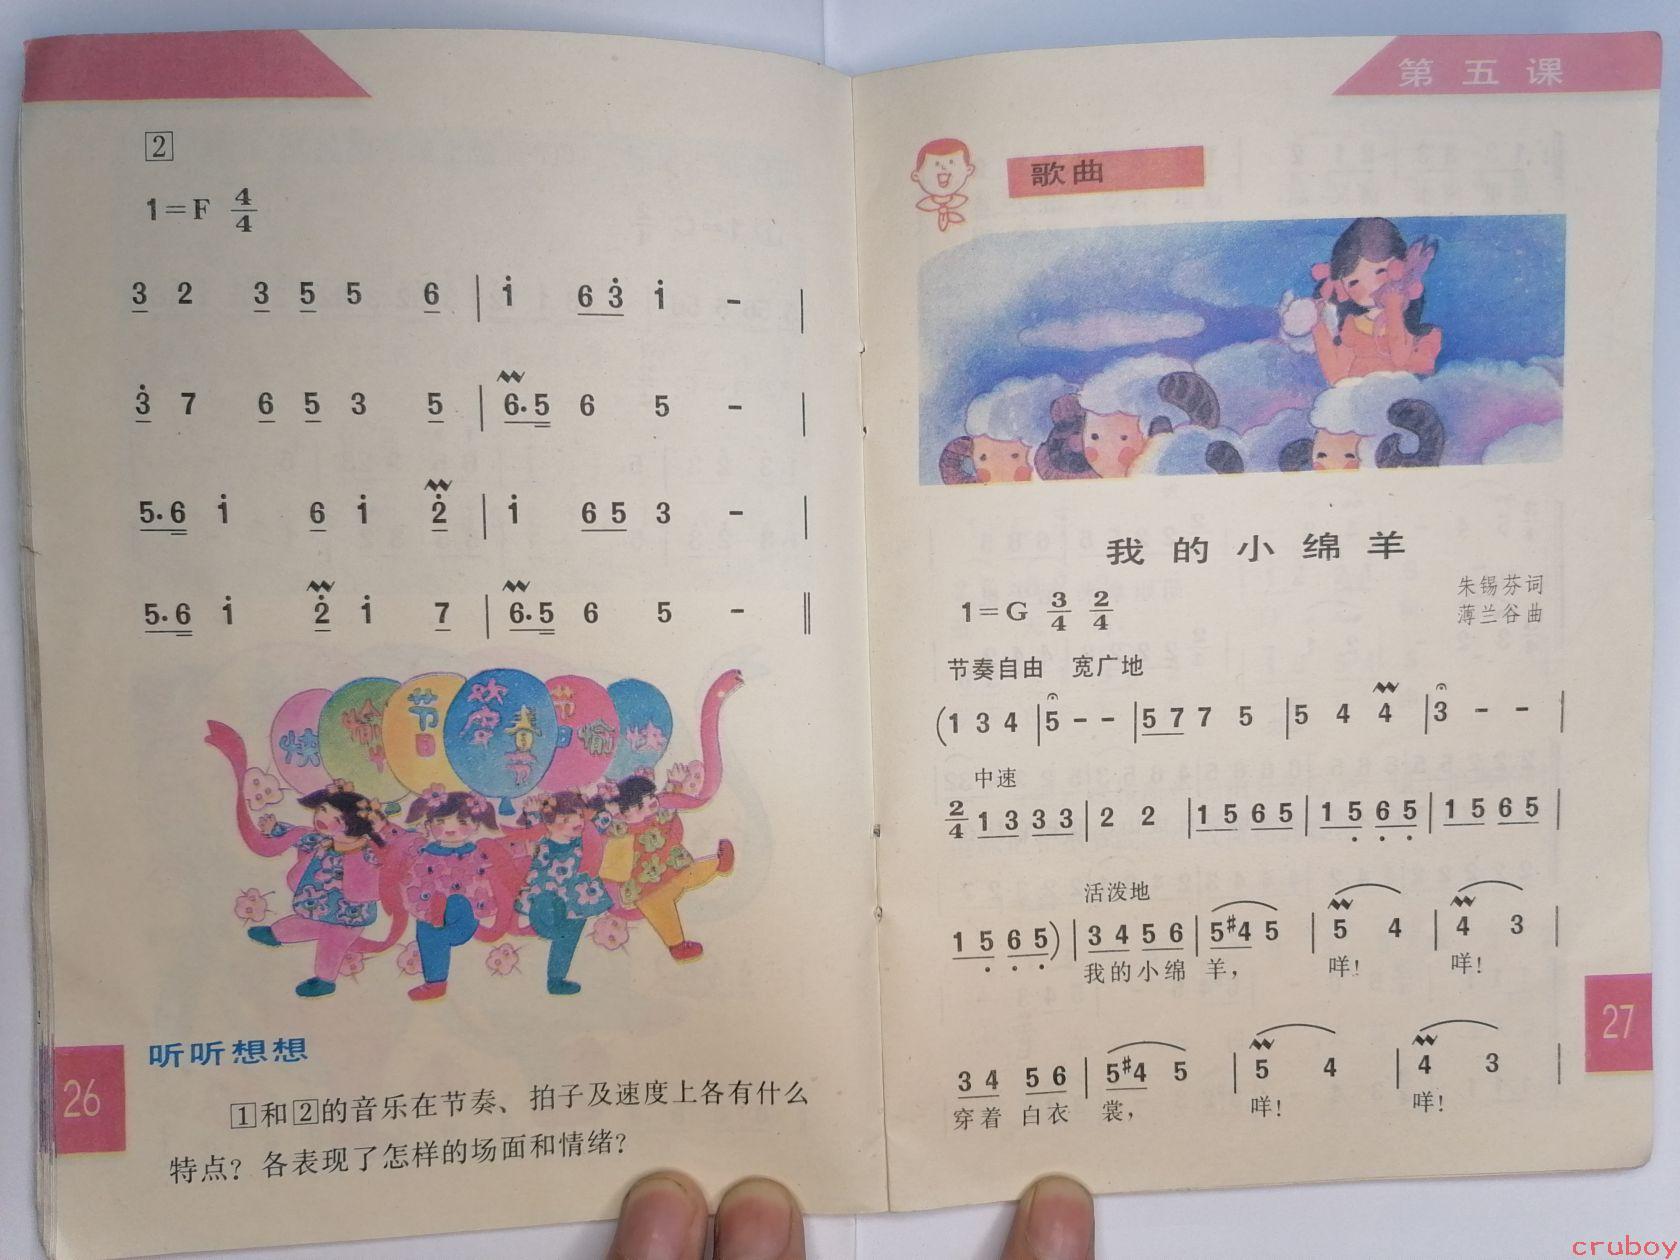 2
1=F 4/4
3 2 3 5 5 6 | i 6 3̇ i - |
3̇ 7 6 5 3 5 | 6. 5 6 5 - |
5. 6 i 6 i 2̇ | i 6 5 3 - |
5. 6 i 2̇ i 7 | 6. 5 6 5 - ‖
快 愉 节日 欢度 春节 节日 愉 快
听听想想
1和2的音乐在节奏、拍子及速度上各有什么
特点?各表现了怎样的场面和情绪?
26
第五课
歌曲
我的小绵羊
朱锡芬词
薄兰谷曲
1=G 3/4 2/4
节奏自由 宽广地
(1 3 4 | 5 - - | 5 7 7 5 | 5 4 4 | 3 - - |
中速
2/4 1 3 3 3 | 2 2 | 1 5 6 5 | 1 5̣ 6̣ 5̣ | 1 5 6 5 |
活泼地
1 5̣ 6̣ 5̣) | 3 4 5 6 | 5 #4 5 | 5 4 | 4 3 |
我的小绵 羊, 咩! 咩!
3 4 5 6 | 5 #4 5 | 5 4 | 4 3 |
穿着 白衣 裳, 咩! 咩!
27
cruboy